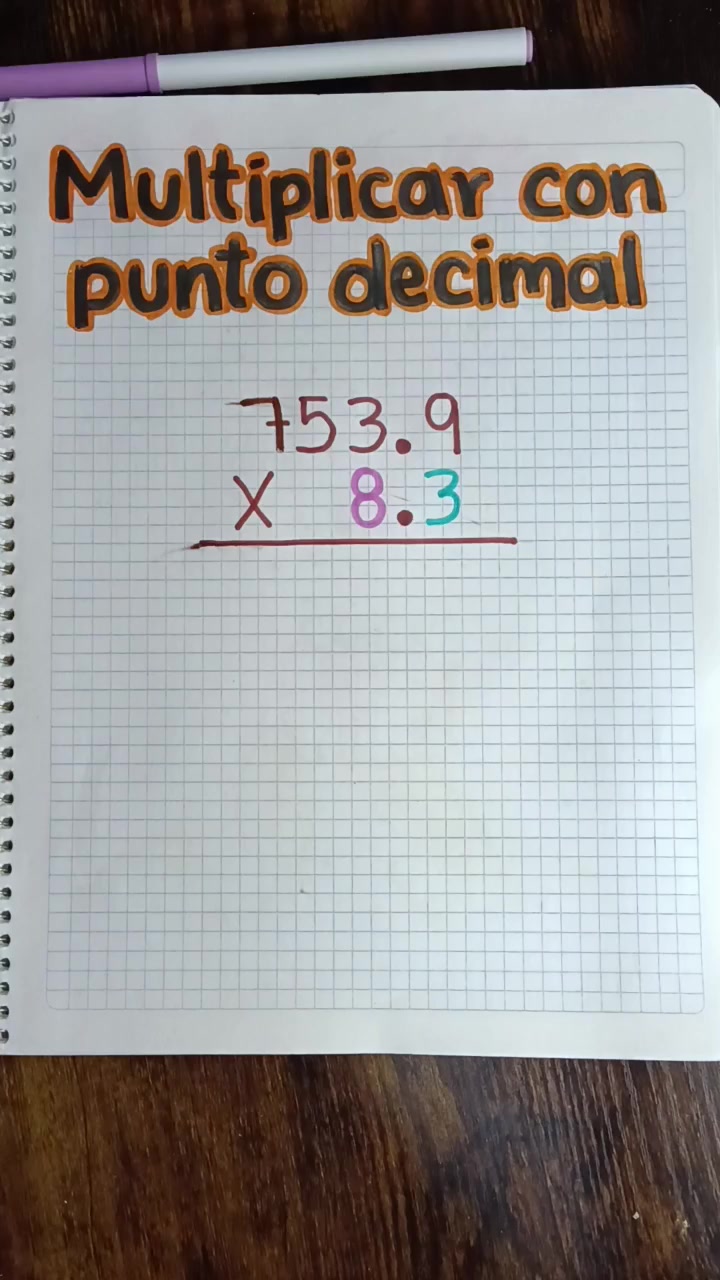 Multiplicar con
punto decimal
753.9
X 8.3